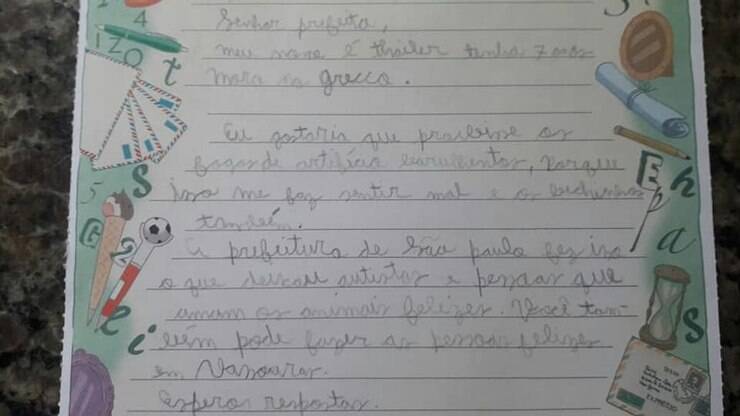 Senhor prefeito,
meu nome é thailer tenho 7 anos
moro no grecco.
Eu gostaria que proibisse os
fogos de artifício barulhentos, porque
isso me faz sentir mal e os bichinhos
também.
A prefeitura de São Paulo fez isso
o que deixou autistas e pessoas que
amam os animais felizes. Você tam-
bém pode fazer as pessoas felizes
em Vassouras.
Espero respostas.